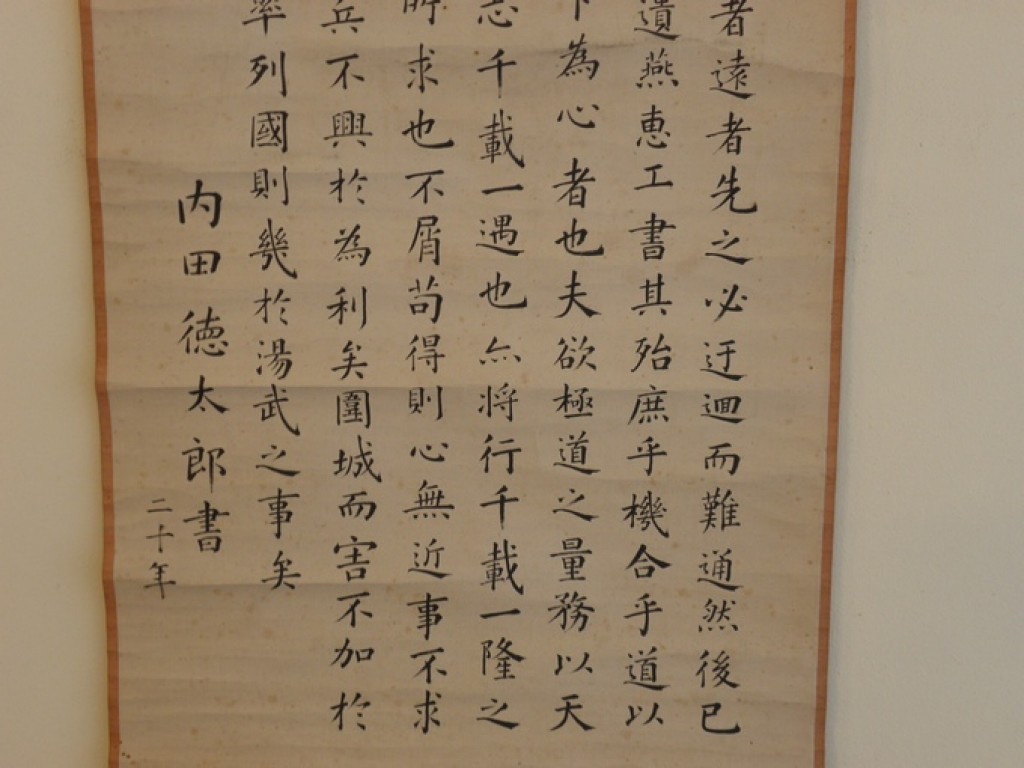 者遠者先之必迂迴而難通然後已
遺燕恵工書其殆庶乎機合乎道以
下為心者也夫欲極道之量務以天
志千載一遇也亦将行千載一隆之
所求也不屑苟得則心無近事不求
兵不興於為利矣圍城而害不加於
率列國則幾於湯武之事矣
内田徳太郎書
二十年